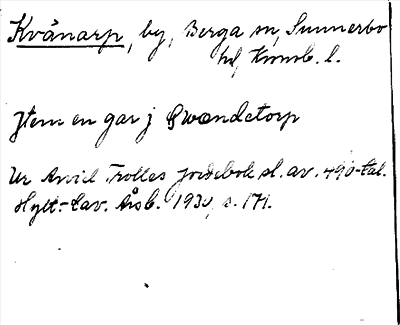 Kvånarp, by, Berga sn, Sunnerbo
hd, Kronb. l.
Jtem en gar j Qwandetorp
Ur Arvid Trolles jordebok sl. av. 490-tal.
Hylt.-Cav. Årsb. 1930, s. 171.